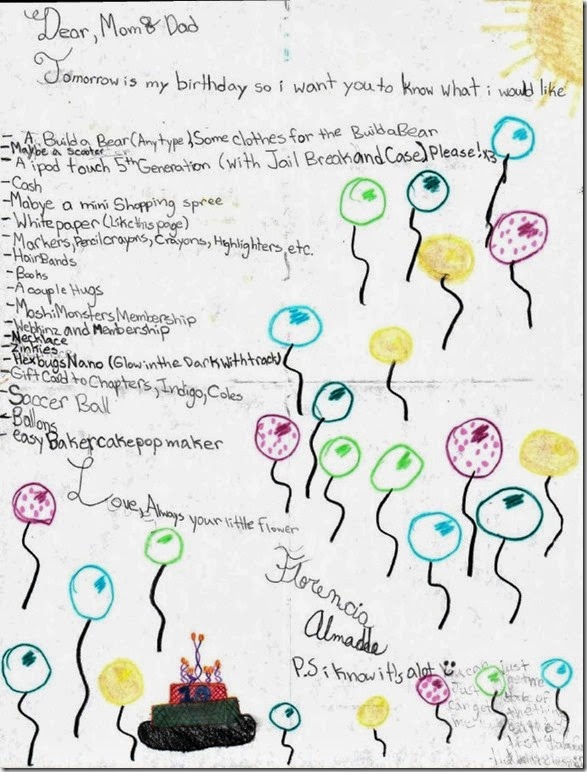 Dear, Mom & Dad
Tomorrow is my birthday so i want you to know what i would like
- A Build a Bear (Any type), Some clothes for the Build a Bear
- Maybe a Scooter
- A ipod touch 5th Generation (with Jail Break and Case) Please! x3
- Cash
- Mabye a mini Shopping spree
- White paper (Like this page)
- Markers, Pencil crayons, Crayons, Highlighters, etc.
- HairBands
- Books
- A couple Hugs
- MoshiMonsters Membership
- Webkinz and Membership
- Necklace
- Zinkies
- Hexbugs Nano (Glow in the Dark with track)
- Gift Card to Chapters, Indigo, Coles
- Soccer Ball
- Ballons
- easy Baker cake pop maker
Love, Always your little flower
Florencia
Almadde
P.S i know it's a lot
u can just
get me
of
can get
me
list
10